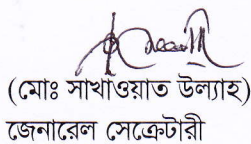 (মোঃ সাখাওয়াত উল্যাহ)
জেনারেল সেক্রেটারী